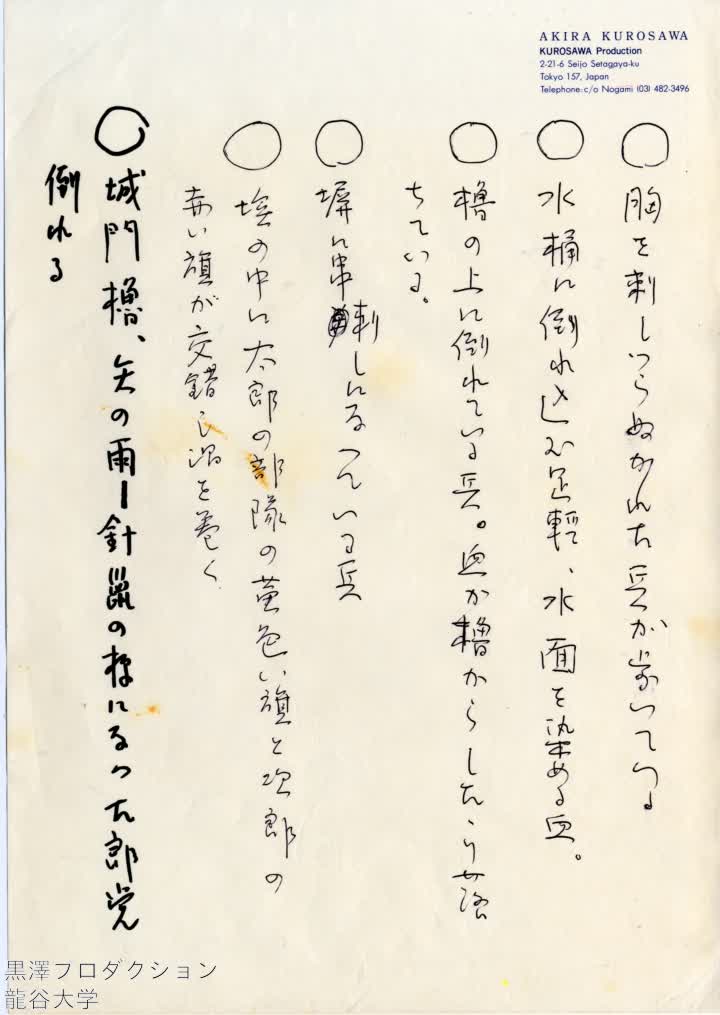 AKIRA KUROSAWA
KUROSAWA Production
2-21-6 Seijo Setagaya-ku
Tokyo 157, Japan
Telephone: c/o Nogami (03) 482-3496
○ 胸を刺しつらぬかれた兵が歩いている
○ 水桶に倒れ込む足軽、水面を染める血。
○ 櫓の上に倒れている兵。血が櫓からしたゝり落
ちている。
○ 塀に串刺しになっている兵
○ 埃の中に太郎の部隊の黄色い旗と次郎の
赤い旗が交錯し渦を巻く
○ 城門櫓、矢の雨ー針鼠の様になった郎党
倒れる
黒澤プロダクション
龍谷大学